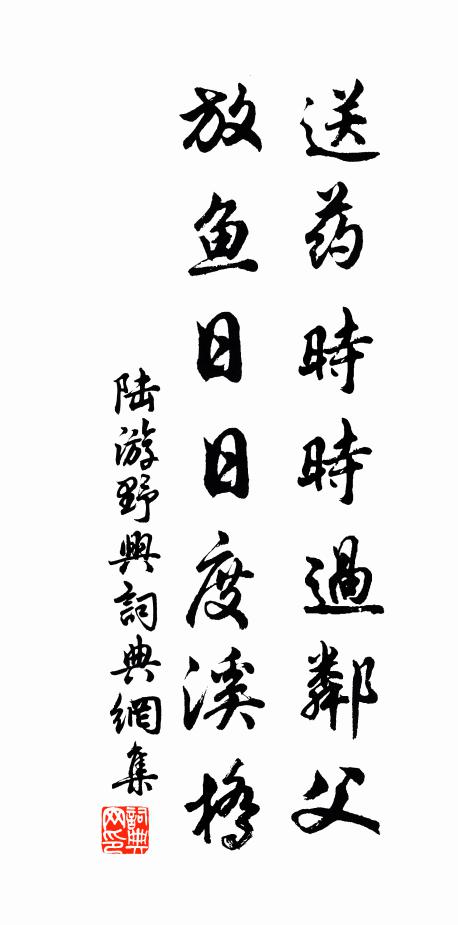 送药時時過鄰父
放鱼日日度溪橋
陆游野興詞典網集
詞典
网印